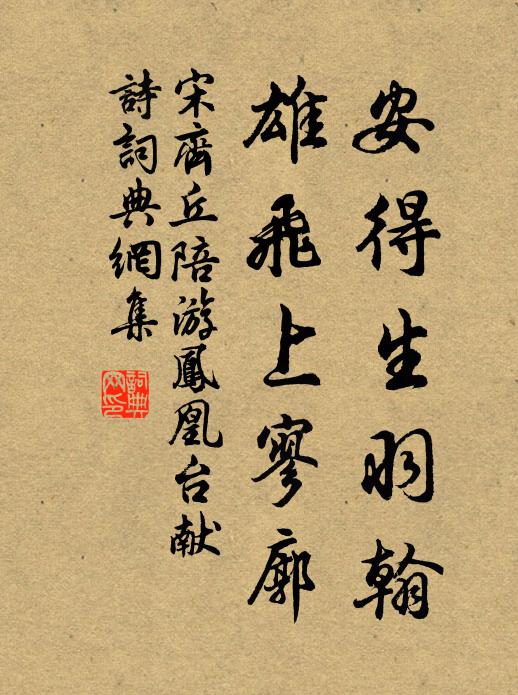 安得生羽翰
雄飛上寥廓
宋齊丘陪游鳳凰台献
詩詞典網集